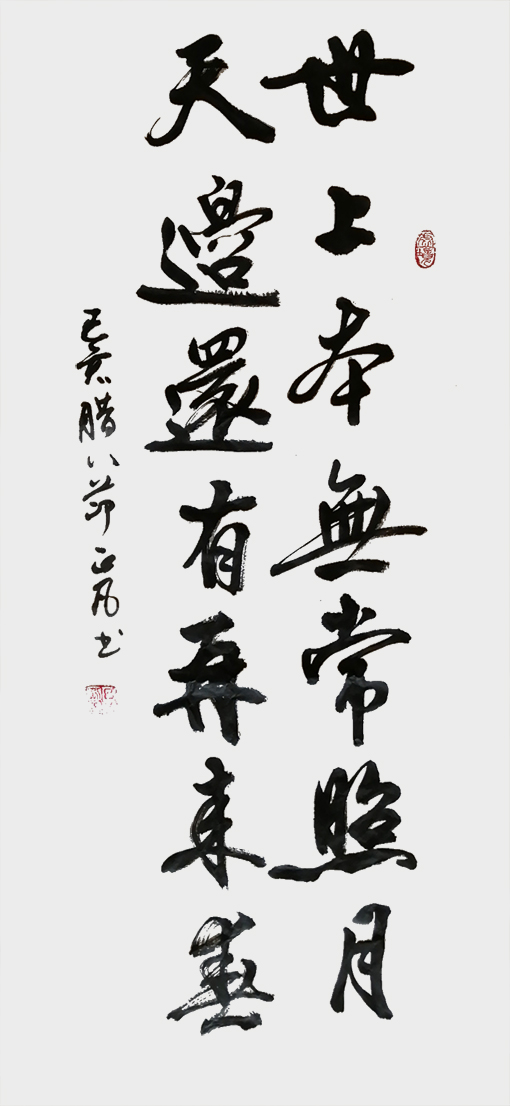 世上本無常照月
天邊還有再來春
己亥腊八節正凡书